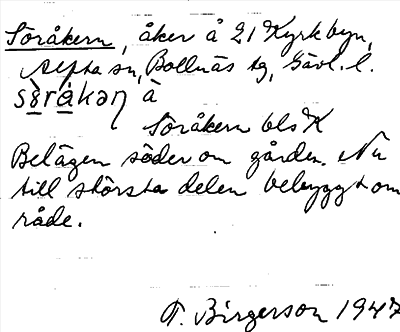 Söråkern, åker å 21 Kyrkbyn,
Alfta sn, Bollnäs tg, Gävl. l.
sö̀råkən å
Söråkern bls K
Belägen söder om gården. Nu
till största delen bebyggt om
råde.
T. Birgerson 1947